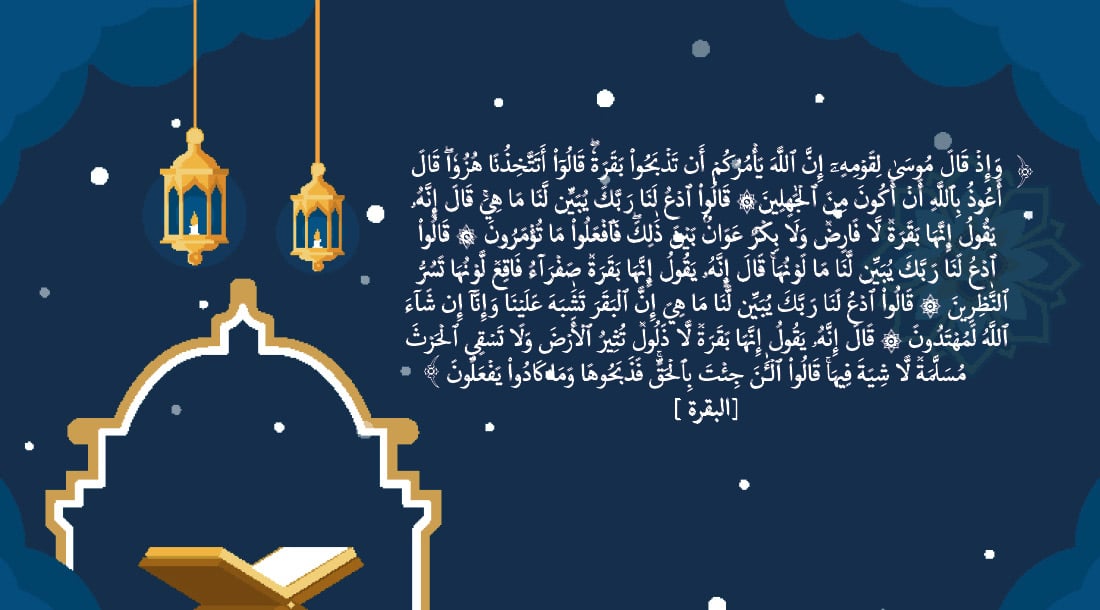 ﴿ وَإِذْ قَالَ مُوسَىٰ لِقَوْمِهِۦٓ إِنَّ ٱللَّهَ يَأْمُرُكُمْ أَن تَذْبَحُوا۟ بَقَرَةً ۖ قَالُوٓا۟ أَتَتَّخِذُنَا هُزُوًا ۖ قَالَ
أَعُوذُ بِٱللَّهِ أَنْ أَكُونَ مِنَ ٱلْجَٰهِلِينَ ۞ قَالُوا۟ ٱدْعُ لَنَا رَبَّكَ يُبَيِّن لَّنَا مَا هِىَ ۚ قَالَ إِنَّهُۥ
يَقُولُ إِنَّهَا بَقَرَةٌ لَّا فَارِضٌ وَلَا بِكْرٌ عَوَانٌۢ بَيْنَ ذَٰلِكَ ۖ فَٱفْعَلُوا۟ مَا تُؤْمَرُونَ ۞ قَالُوا۟
ٱدْعُ لَنَا رَبَّكَ يُبَيِّن لَّنَا مَا لَوْنُهَا ۚ قَالَ إِنَّهُۥ يَقُولُ إِنَّهَا بَقَرَةٌ صَفْرَآءُ فَاقِعٌ لَّوْنُهَا تَسُرُّ
ٱلنَّٰظِرِينَ ۞ قَالُوا۟ ٱدْعُ لَنَا رَبَّكَ يُبَيِّن لَّنَا مَا هِىَ إِنَّ ٱلْبَقَرَ تَشَٰبَهَ عَلَيْنَا وَإِنَّآ إِن شَآءَ
ٱللَّهُ لَمُهْتَدُونَ ۞ قَالَ إِنَّهُۥ يَقُولُ إِنَّهَا بَقَرَةٌ لَّا ذَلُولٌ تُثِيرُ ٱلْأَرْضَ وَلَا تَسْقِى ٱلْحَرْثَ
مُسَلَّمَةٌ لَّا شِيَةَ فِيهَا ۚ قَالُوا۟ ٱلْـَٰٔنَ جِئْتَ بِٱلْحَقِّ ۚ فَذَبَحُوهَا وَمَا كَادُوا۟ يَفْعَلُونَ ﴾
[البقرة ]